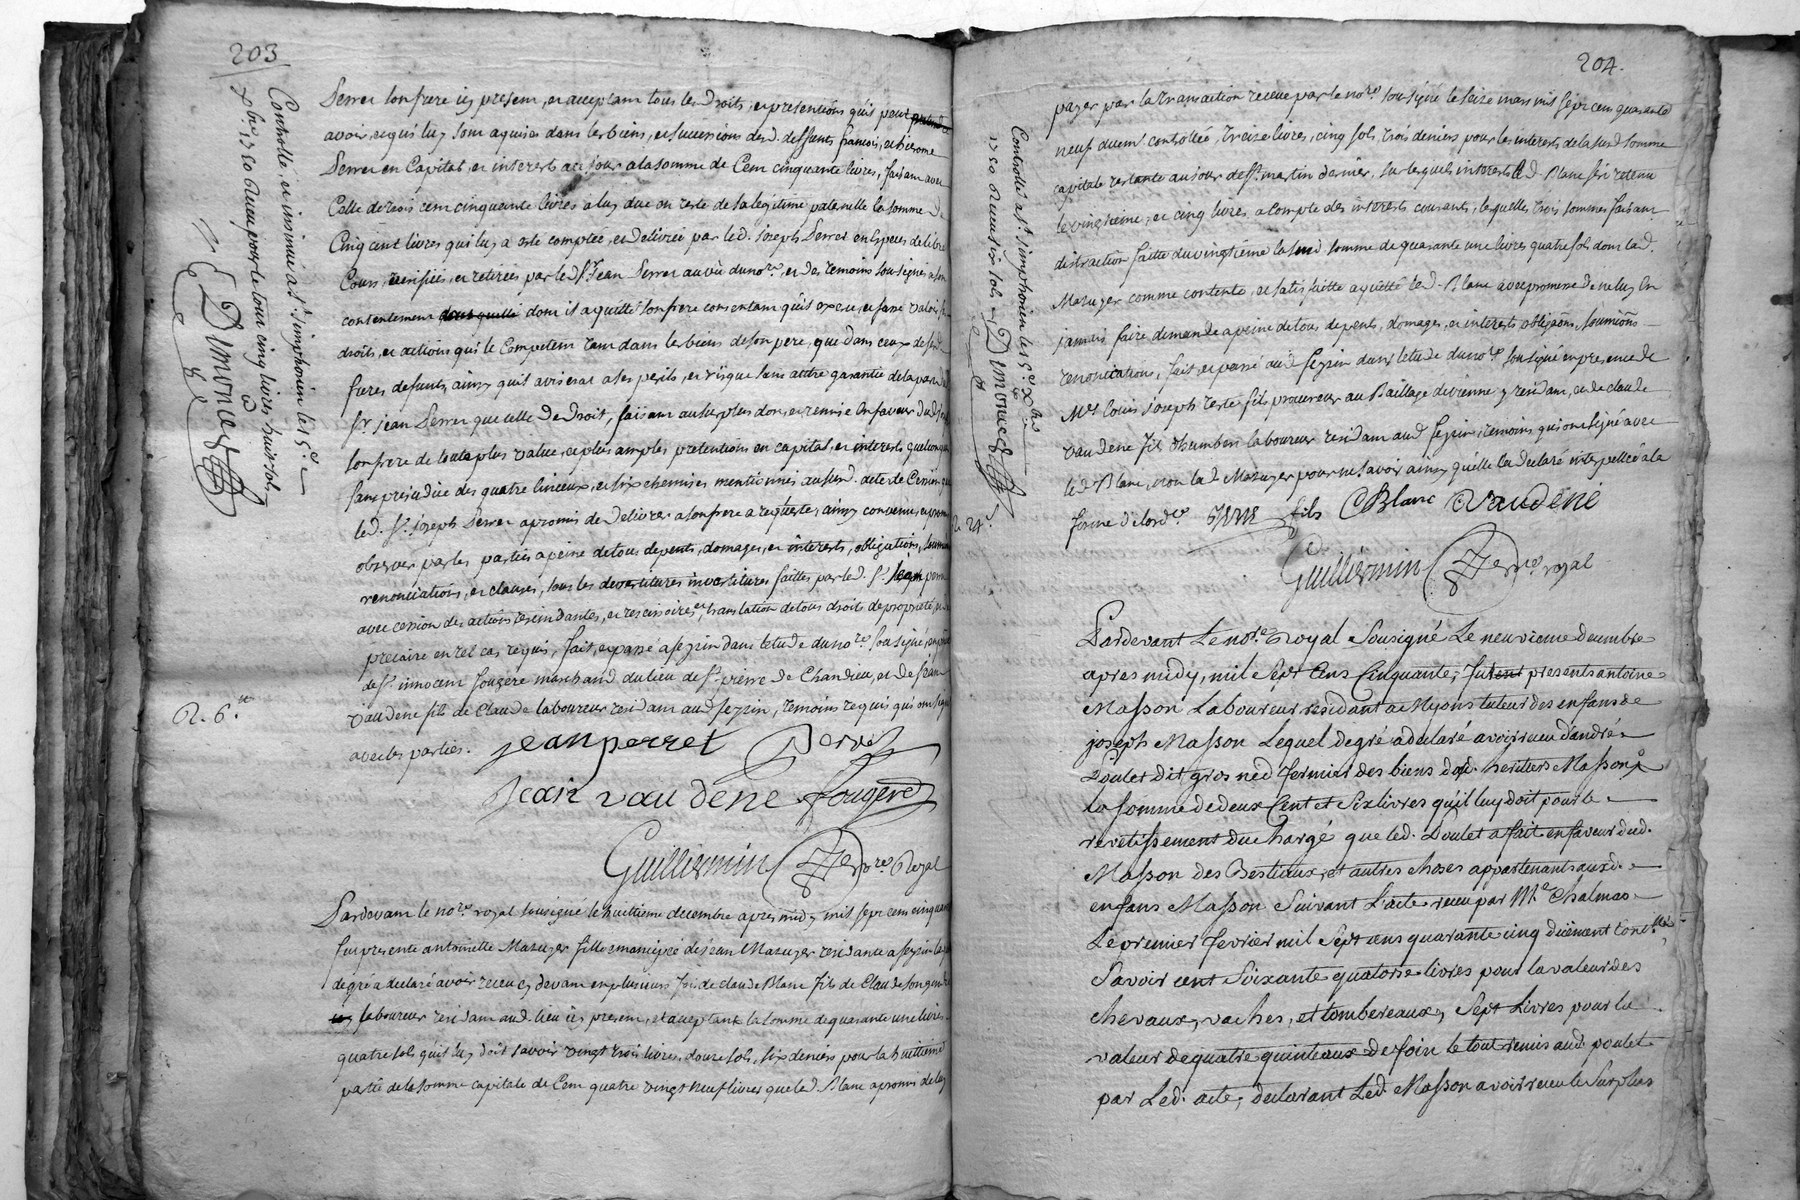 203
Controllé, et insinué à St. simphorien le 15e
Xbre 1750 Receu pour le tout cinq livres huit sols
Dimonced
R. 6. tt
Serrer son frere icy present, et acceptant tous les droits, et pretentions qu'il peut
avoir, et qui luy sont aquises dans les biens, et successions desd. deffunts francois, et hierome
Serrer en Capital, et interests a ce jour a la somme de Cent cinquante livres, faisant avec
Celle de trois cent cinquante livres a luy due en reste de sa legitime paternelle la somme de
Cinq cent livres qui luy a esté comptée, et delivrée par led. joseph Serrer en Especes de libre
Cours, verifiées, et retirées par led. Sr. Jean Serrer au vû du nore, et des temoins sousignés a son
contentement dont il a quitté son frere consentant qu'il exerce, et fasse valoir les
droits, et actions qui le Competent tant dans les biens de son pere, que dans ceux de sesd.
freres defunts, ainsy qu'il avisera a ses perils, et risque sans autre garantie de la part dud.
Sr. jean Serrer que celle de droit, faisant au surplus don, et remise en faveur dud.
son frere de toute plus value, et plus amples pretentions en capital, et interests quelconques
sans prejudice des quatre linceux, et six chemises mentionnés au susd. acte de Cession que
led. Sr. joseph Serrer a promis de delivrer a son frere a requeste, ainsy convenu, et promis
observer par les parties a peine de tous depents, domages, et interests, obligations, soumissions
renonciations, et clauses, sous les devestitures investitures faittes par led. Sr.
avec cession des actions rescindantes, et rescisoires, et translation de tous droits de proprieté
precaire en tel cas requis, fait, et passé a feyzin dans letude du nore sousigné, en presence
de Sr. innocent fougere marchand du lieu de St. pierre de Chandieu, et de Jean
vaudene fils de Claude laboureur residant aud. feyzin, temoins requis qui ont signé
avec les parties. jean perret Server
Jean vaudene fougere
Guilliermin nore Royal
Pardevant le nore royal sousigné le huittieme decembre apres midy mil sept cent cinquante
fut presente antoinette Mazuyer fille emancipée de jean Mazuyer residante a feyzin laquelle
de gré a declaré avoir receu cy devant en plusieurs fois de claude Blanc fils de Claude son gendre
laboureur residant aud. lieu icy present, et acceptant la somme de quarante une livres
quatre sols qu'il luy doit savoir vingt trois livres, douze sols, six deniers pour la huittieme
partie de la somme capitale de Cent quatre vingt neuf livres que led. Blanc a promis de luy
204.
Controllé a St. simphorien le 15e Xbre
1750 Receu six sols
Dimonced
R. 24 s.
payer par la transaction receue par le nore sousigné le seize mars mil sept cent quarante
neuf duem. controllée, treize livres, cinq sols, trois deniers pour les interests de la susd. somme
capitale restante au jour de St. martin dernier, sur lesquels interests led. Blanc s'est retenu
le vingtieme, et cinq livres a compte des interests courants, lesquelles trois sommes faisant
distraction faitte du vingtieme la susd. somme de quarante une livres quatre sols dont lad.
Mazuyer comme contente, et satisfaitte a quitté led. Blanc avec promesse de ne luy en
jamais faire demande a peine de tous depents, domages, et interests obligaons, soumisions
renonciations, fait, et passé aud. feyzin dans letude du nore sousigné en presence de
Me. louis joseph teste fils procureur au Baillage de vienne y residant, et de claude
vaudene fils d'humbert laboureur residant aud. feyzin, temoins qui ont signé avec
led. Blanc, non lad. Mazuyer pour ne savoir ainsy qu'elle l'a declaré interpellée a la
forme d'lordce. teste fils C Blanc vaudene
Guilliermin nore royal
Pardevant Le nore Royal Sousigné Le neuvieme decembre
apres midy, mil Sept Cens Cinquante, fut present antoine
Masson Laboureur residant a Myons tuteur des enfans de
joseph Masson Lequel de gré a declaré avoir receu d'andré
Poulet dit gros ned fermier des biens desd. heritiers Masson
La somme de deux Cent et Six livres qu'il luy doit pour le
revetissement du chargé que led. Poulet a fait en faveur dud.
Masson des Bestiaux, et autres choses appartenants auxd.
enfans Masson Suivant L'acte receu par Me Chalmas
Le premier fevrier mil Sept cens quarante cinq duëment Contrllé,
Savoir cent Soixante quatorse livres pour la valeur des
chevaux, vaches, et tombereaux, Sept Livres pour la
valeur de quatre quinteaux de foin le tout remis aud. poulet
par Led. acte, declarant Led. Masson avoir receu le Surplus